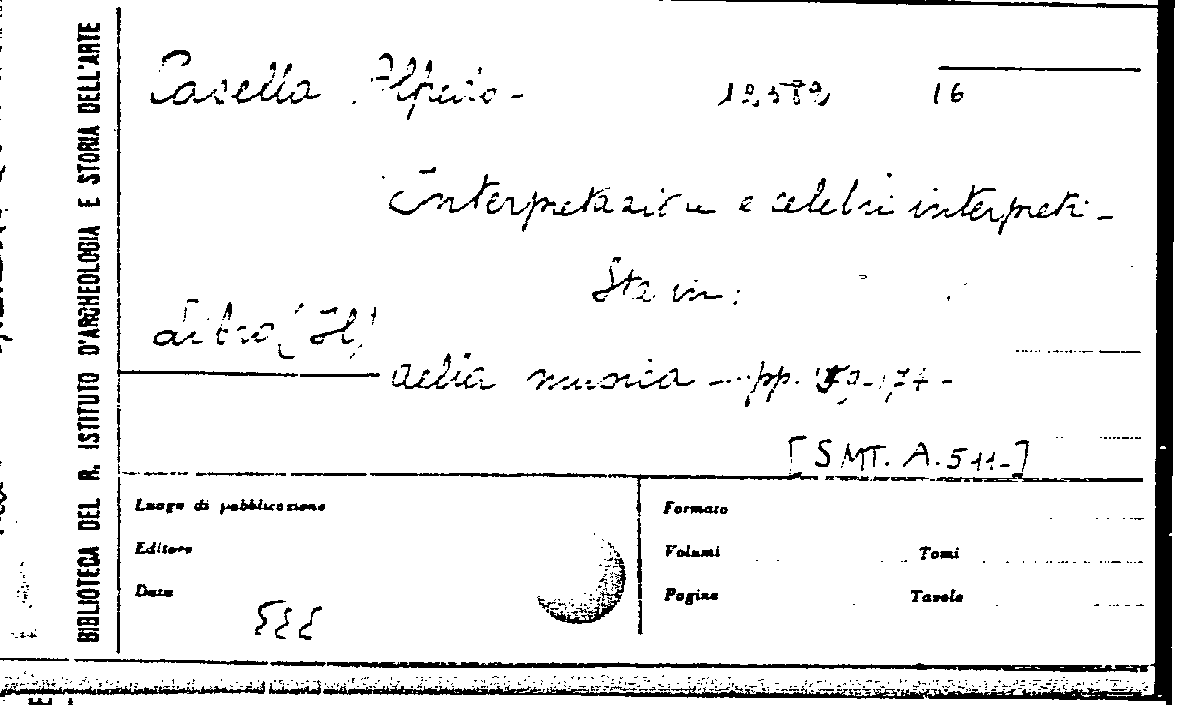 BIBLIOTECA DEL R. ISTITUTO D'ARCHEOLOGIA E STORIA DELL'ARTE
Casella Alfredo - 12582 16
Interpretazione e celebri interpreti -
Sta in:
Libro (Il)
della musica - pp. 174 -
[SMT. A. 511-]
Luogo di pubblicazione
Editore
Data
Formato
Volumi Tomi
Pagine Tavole